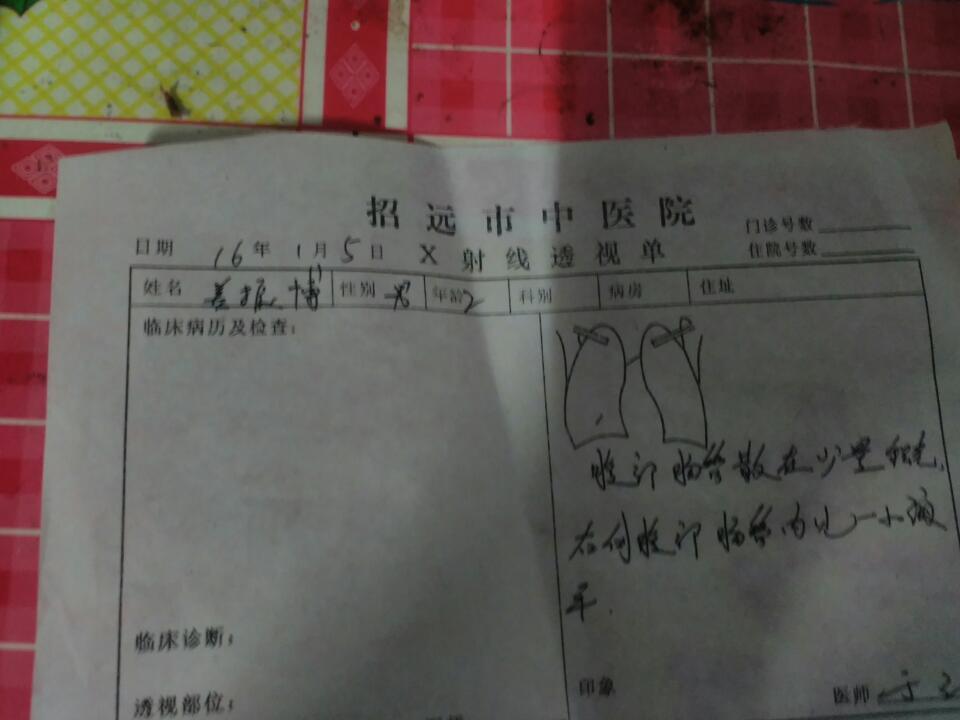 招远市中医院
门诊号数
日期 16年1月5日 X射线透视单 住院号数
姓名 姜振博 性别 男 年龄 2 科别 病房 住址
临床病历及检查:
腹部肠管散在少量积气,
右侧腹部肠管内见一小液
平.
临床诊断:
印象 医师
透视部位: